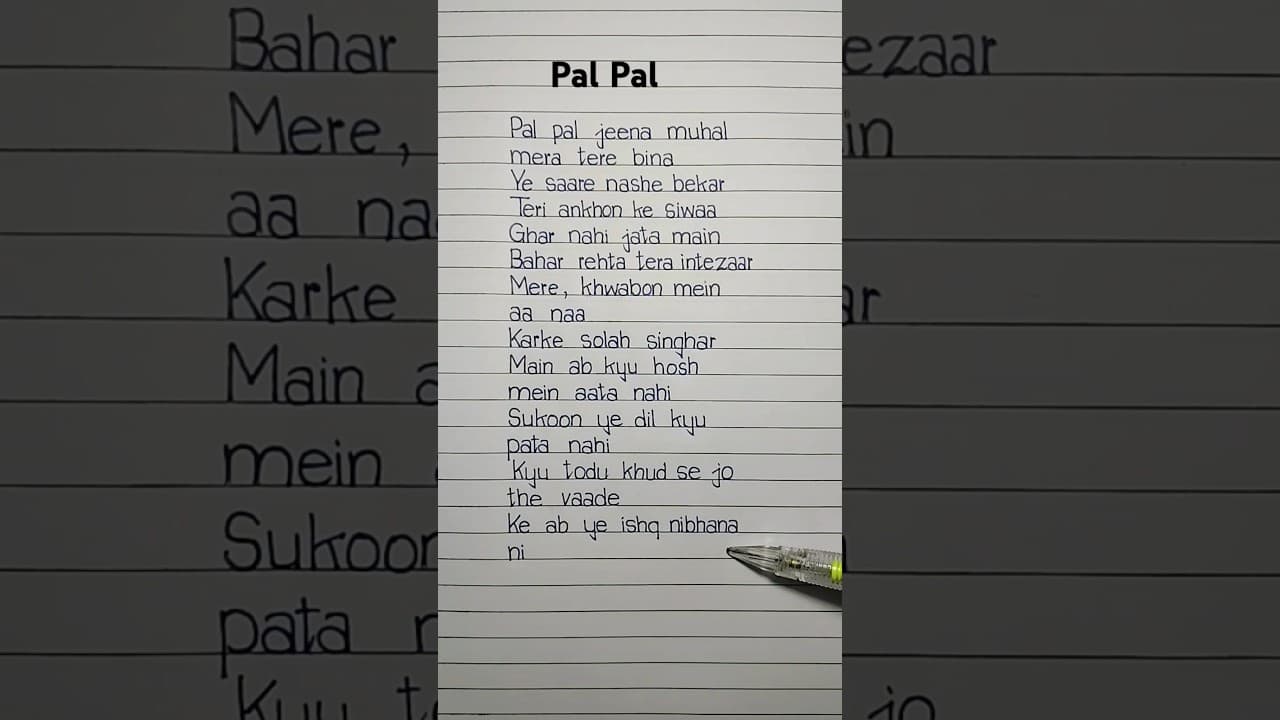 Pal Pal
Pal pal jeena muhal
mera tere bina
Ye saare nashe bekar
Teri ankhon ke siwaa
Ghar nahi jata main
Bahar rehta tera intezaar
Mere, khwabon mein
aa naa
Karke solah singhar
Main ab kyu hosh
mein aata nahi
Sukoon ye dil kyu
pata nahi
Kyu todu khud se jo
the vaade
Ke ab ye ishq nibhana
ni